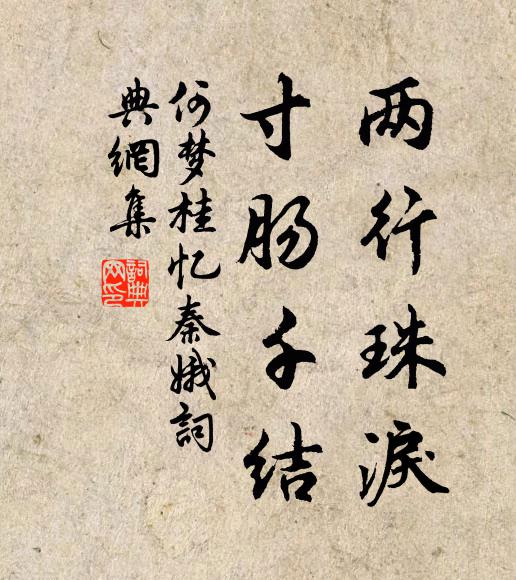 两行珠淚
寸肠千结
何梦桂忆秦娥詞
典網集
詞典网印